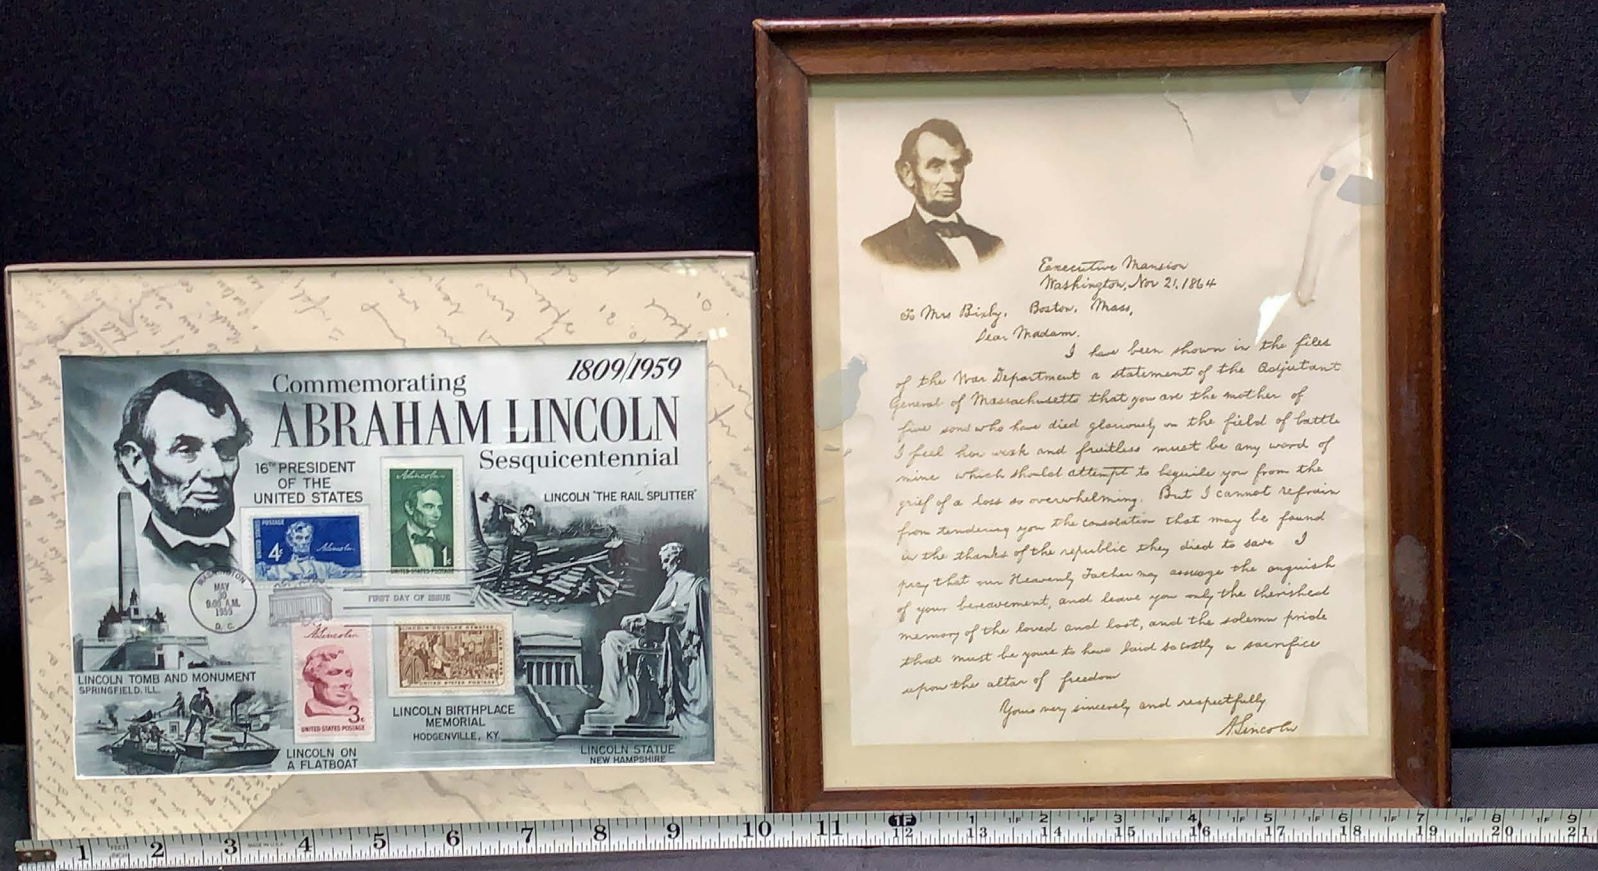 1809/1959
Commemorating
ABRAHAM LINCOLN
Sesquicentennial
16TH PRESIDENT
OF THE
UNITED STATES
LINCOLN "THE RAIL SPLITTER"
A Lincoln
1¢
UNITED STATES POSTAGE
UNITED STATES
POSTAGE
4¢
A Lincoln
WASHINGTON
MAY
30
9:00 A.M.
1959
D. C.
FIRST DAY OF ISSUE
A Lincoln
3¢
UNITED STATES POSTAGE
LINCOLN-DOUGLAS DEBATES
UNITED STATES POSTAGE
LINCOLN TOMB AND MONUMENT
SPRINGFIELD, ILL.
LINCOLN BIRTHPLACE
MEMORIAL
HODGENVILLE, KY.
LINCOLN ON
A FLATBOAT
LINCOLN STATUE
NEW HAMPSHIRE
Executive Mansion
Washington, Nov 21, 1864
To Mrs Bixby, Boston, Mass,
Dear Madam.
I have been shown in the files
of the War Department a statement of the Adjutant
General of Massachusetts that you are the mother of
five sons who have died gloriously on the field of battle
I feel how weak and fruitless must be any word of
mine which should attempt to beguile you from the
grief of a loss so overwhelming. But I cannot refrain
from tendering you the consolation that may be found
in the thanks of the republic they died to save I
pray that our Heavenly Father may assuage the anguish
of your bereavement, and leave you only the cherished
memory of the loved and lost, and the solemn pride
that must be yours to have laid so costly a sacrifice
upon the altar of freedom
Yours very sincerely and respectfully
A Lincoln
1 2 3 4 5 6 7 8 9 10 11 1F 12 13 14 15 16 17 18 19 20 21
1F 1 1F 2 1F 3 1F 4 1F 5 1F 6 1F 7 1F 8 1F 9